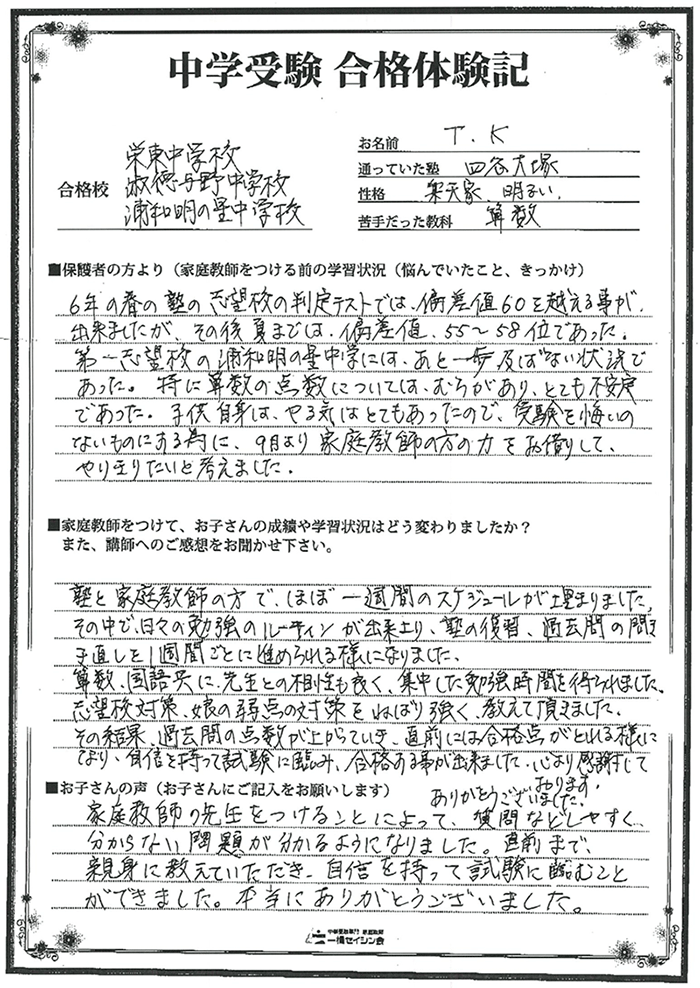 中学受験 合格体験記
合格校
栄東中学校
淑徳与野中学校
浦和明の星中学校
お名前 T.K
通っていた塾 四谷大塚
性格 楽天家、明るい
苦手だった教科 算数
■保護者の方より（家庭教師をつける前の学習状況（悩んでいたこと、きっかけ）
6年の春の塾の志望校の判定テストでは、偏差値60を越える事が、
出来ましたが、その後夏までは、偏差値、55〜58位であった。
第一志望校の浦和明の星中学には、あと一歩及ばない状況で
あった。特に算数の点数については、むらがあり、とても不安定
であった。子供自身は、やる気はとてもあったので、受験を悔いの
ないものにする為に、9月より家庭教師の方の力をお借りして、
やり玉りたいと考えました。
■家庭教師をつけて、お子さんの成績や学習状況はどう変わりましたか？
また、講師へのご感想をお聞かせ下さい。
塾と家庭教師の方で、ほぼ一週間のスケジュールが埋まりました。
その中で、日々の勉強のルーティンが出来上り、塾の復習、過去問の問き
直しと1週間ごとに進められる様になりました。
算数、国語共に、先生との相性も良く、集中した勉強時間を得られました。
志望校対策、娘の弱点の対策をねばり強く、教えて頂きました。
その結果、過去問の点数が上がっていき、直前には合格点がとれる様に
なり、自信を持って試験に臨み、合格する事が出来ました。心より感謝して
おります。
ありがとうございました。
■お子さんの声（お子さんにご記入をお願いします）
家庭教師の先生をつけることによって、質問などしやすく、
分からない問題が分かるようになりました。直前まで、
親身に教えていただき、自信を持って試験に臨むこと
ができました。本当にありがとうございました。
中学受験専門 家庭教師
一橋セイシン会